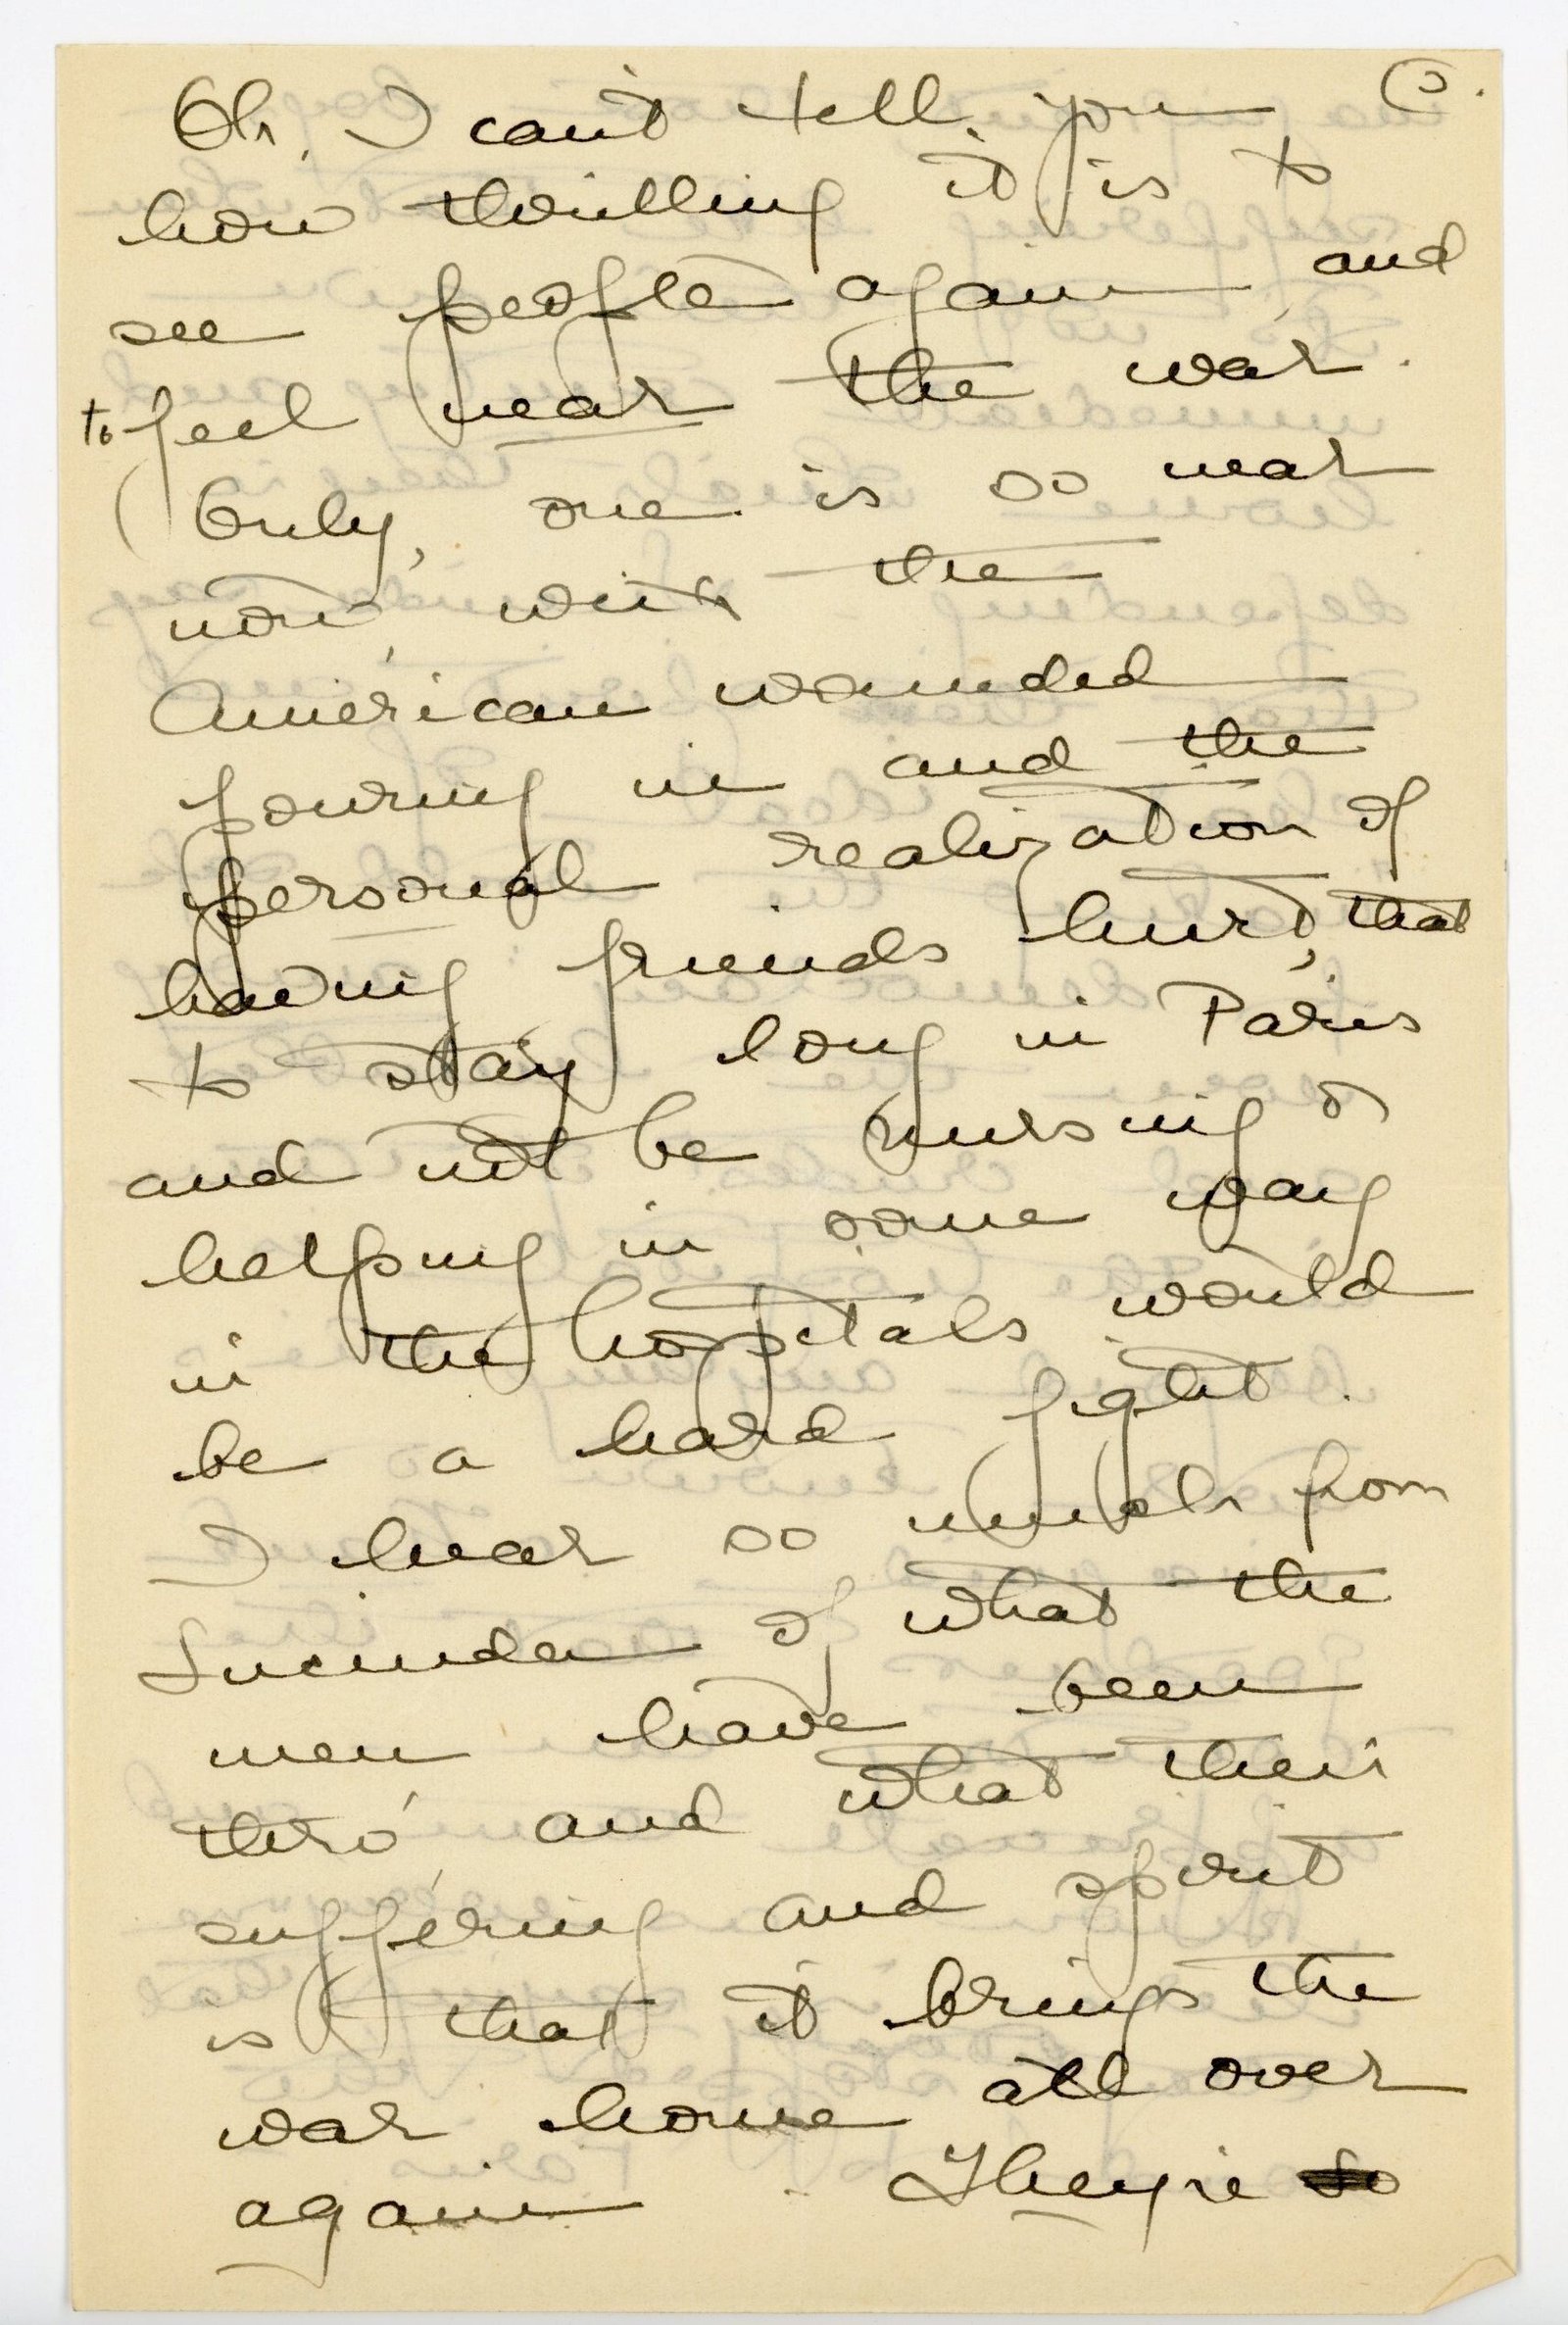 Oh, I can't tell you
how thrilling it is to
see people again and
to feel near the war.
Only, one is so near
now, with the
American wounded
pouring in and the
personal realization of
having friends hurt, that
to stay long in Paris
and not be nursing or
helping in some way
in the hospitals would
be a hard fight.
I hear so much from
Lucinda of what the
men have been
thro', and what their
suffering and spirit
is that it brings the
war home all over
again. They're